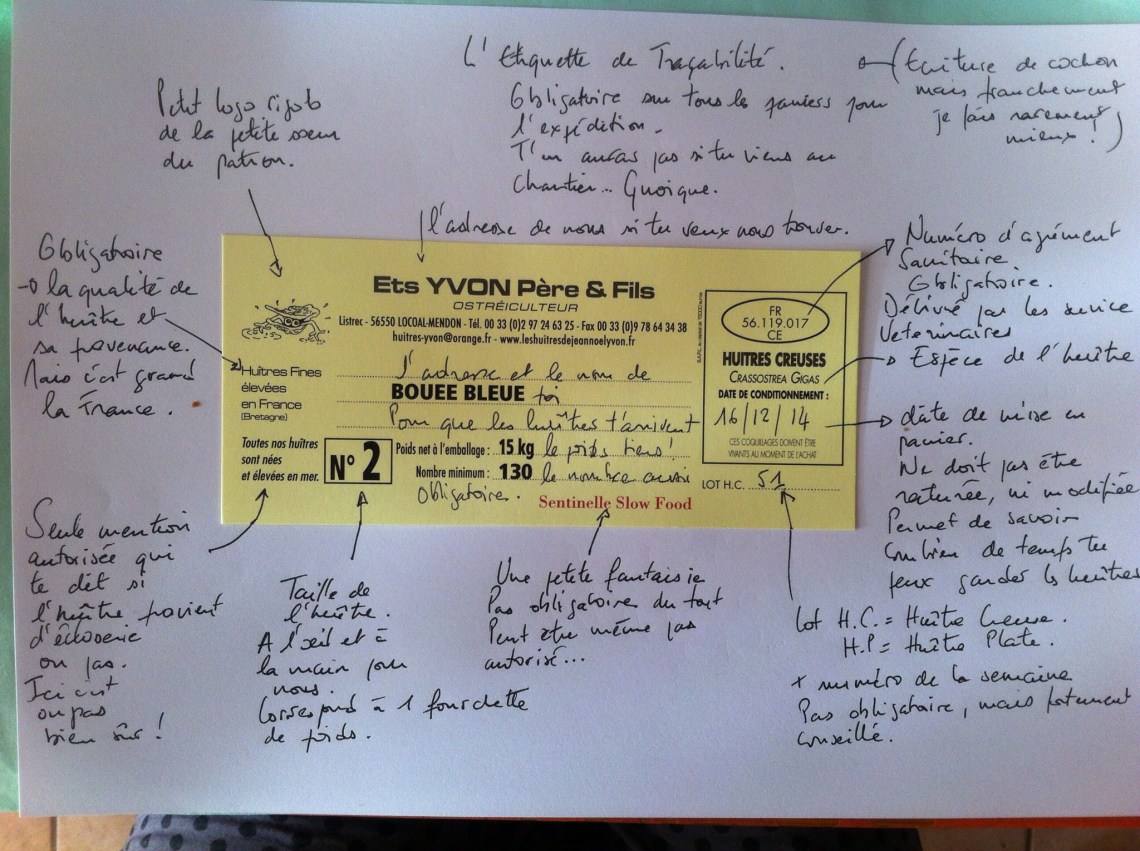 L'Etiquette de Traçabilité.
Obligatoire sur tous les paniers pour
l'expédition.
T'en auras pas si tu viens au
chantier... Quoique.
(Ecriture de cochon
mais franchement
je fais rarement
mieux !)
Petit logo rigolo
de la petite soeur
du patron.
l'adresse de nous si tu veux nous trouver.
Obligatoire
la qualité de
l'huître et
sa provenance.
Mais c'est grand
la France.
Ets YVON Père & Fils
OSTRÉICULTEUR
Listrec - 56550 LOCOAL-MENDON - Tél. 00 33 (0)2 97 24 63 25 - Fax 00 33 (0)9 78 64 34 38
huitres-yvon@orange.fr - www.leshuitresdejeannoelyvon.fr
Huîtres Fines
élevées
en France
(Bretagne)
l'adresse et le nom de
BOUEE BLEUE toi
Pour que les huîtres t'arrivent
Toutes nos huîtres
sont nées
et élevées en mer.
N° 2
Poids net à l'emballage : 15 kg le poids tiens !
Nombre minimum : 130 le nombre aussi
obligatoire.
Sentinelle Slow Food
FR
56.119.017
CE
HUITRES CREUSES
CRASSOSTREA GIGAS
DATE DE CONDITIONNEMENT :
16/12/14
CES COQUILLAGES DOIVENT ÊTRE
VIVANTS AU MOMENT DE L'ACHAT
LOT H.C. 51
Numéro d'agrément
Sanitaire
Obligatoire.
Délivré par les service
Veterinaires
Espèce de l'huître
date de mise en
panier.
Ne doit pas être
raturée, ni modifiée
Permet de savoir
combien de temps tu
peux garder les huîtres
Seule mention
autorisée qui
te dit si
l'huître provient
d'écloserie
ou pas.
Ici c'est
ou pas
bien sûr !
Taille de
l'huître.
A l'oeil et à
la main pour
nous.
Correspond à 1 fourchette
de poids.
Une petite fantaisie
Pas obligatoire du tout
Peut être même pas
autorisé...
Lot H.C. = Huître Creuse.
H.P = Huître Plate.
+ numéro de la semaine
Pas obligatoire, mais fortement
conseillé.